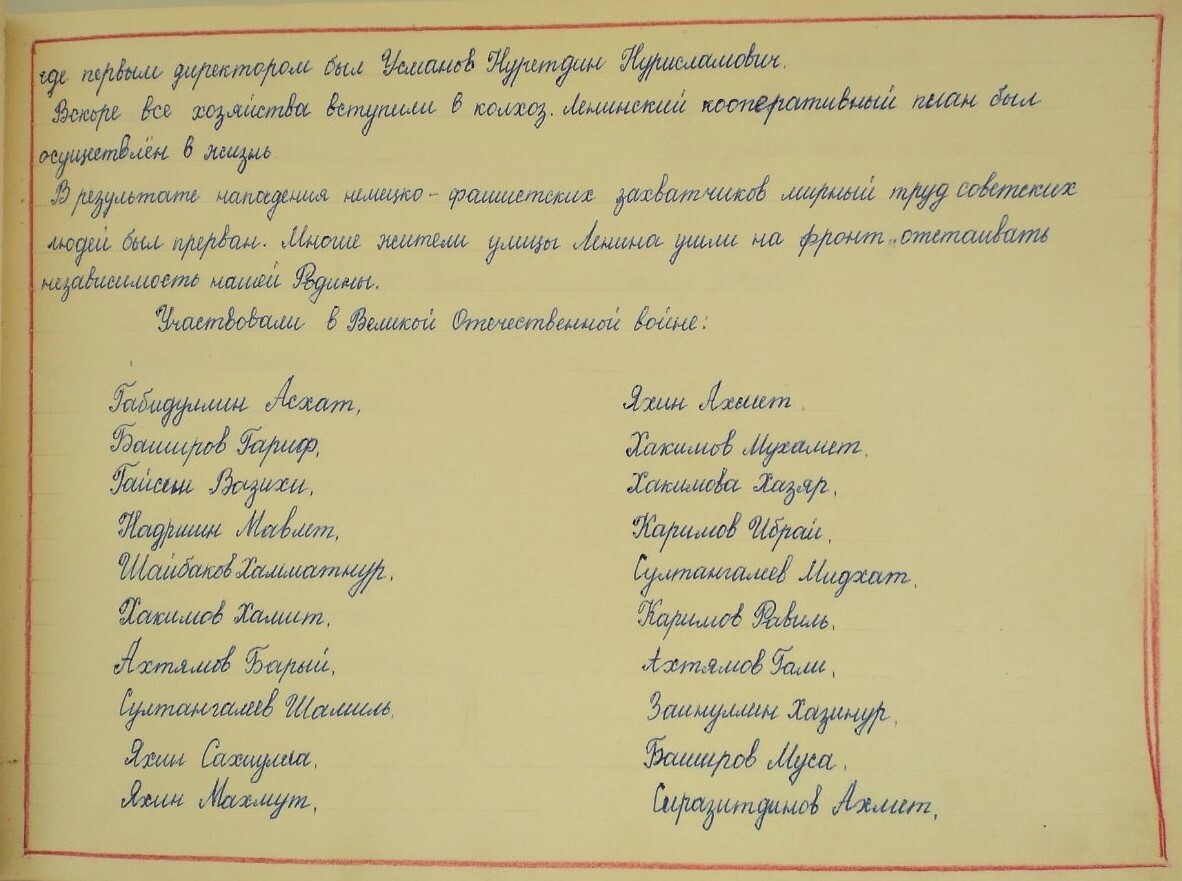 где первым директором был Усманов Нуретдин Нурисламович.
Вскоре все хозяйства вступили в колхоз. Ленинский кооперативный план был
осуществлён в жизнь.
В результате нападения немецко-фашистских захватчиков мирный труд советских
людей был прерван. Многие жители улицы Ленина ушли на фронт отстаивать
независимость нашей Родины.
Участвовали в Великой Отечественной войне:
Габидуллин Асхат,
Баширов Гариф,
Гайсин Вазихи,
Надршин Мавлет,
Шайбаков Хамматнур,
Хакимов Хамит,
Ахтямов Барый,
Султангалеев Шамиль,
Яхин Сахиулла,
Яхин Махмут,
Яхин Ахмет,
Хакимов Мухамет,
Хакимова Хазяр,
Каримов Ибрай,
Султангалеев Мидхат,
Каримов Равиль,
Ахтямов Гали,
Заинуллин Хазинур,
Баширов Муса,
Сиразитдинов Ахмет,